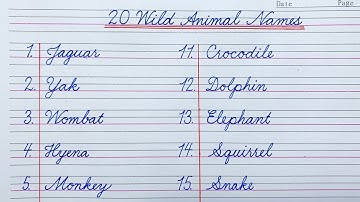 Date Page
20 Wild Animal Names
1. Jaguar 11. Crocodile
2. Yak 12. Dolphin
3. Wombat 13. Elephant
4. Hyena 14. Squirrel
5. Monkey 15. Snake